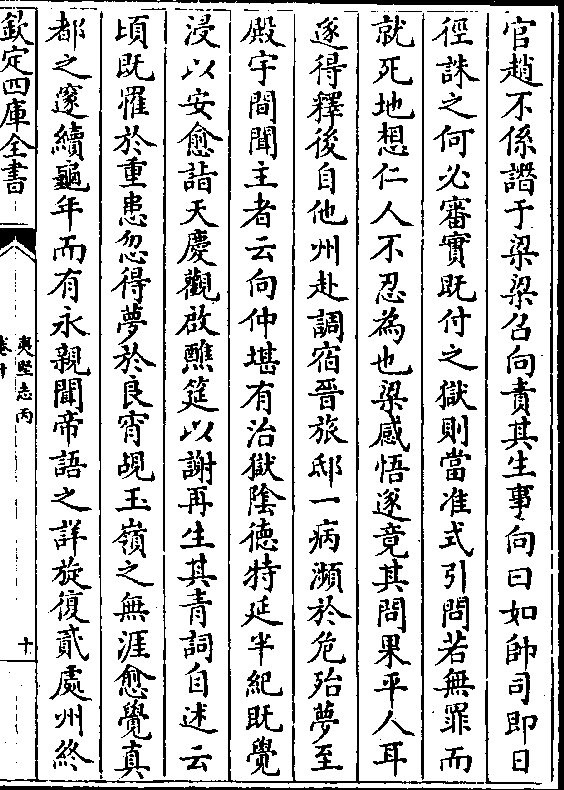 官趙不係譖于梁梁召向責其生事向曰如帥司即日
徑誅之何必審實既付之獄則當准式引問若無罪而
就死地想仁人不忍為也梁感悟遂竟其問果平人耳
遂得釋後自他州赴調宿晉旅邸一病瀕於危殆夢至
殿宇間聞主者云向仲堪有治獄陰德特延半紀既覺
浸以安愈詣天慶觀啟醮筵以謝再生其青詞自述云
頃既罹於重患忽得夢於良宵覘玉嶺之無涯愈覺真
都之邃續龜年而有永親聞帝語之詳旋復貳處州終
欽定四庫全書
夷堅志丙
卷十
十